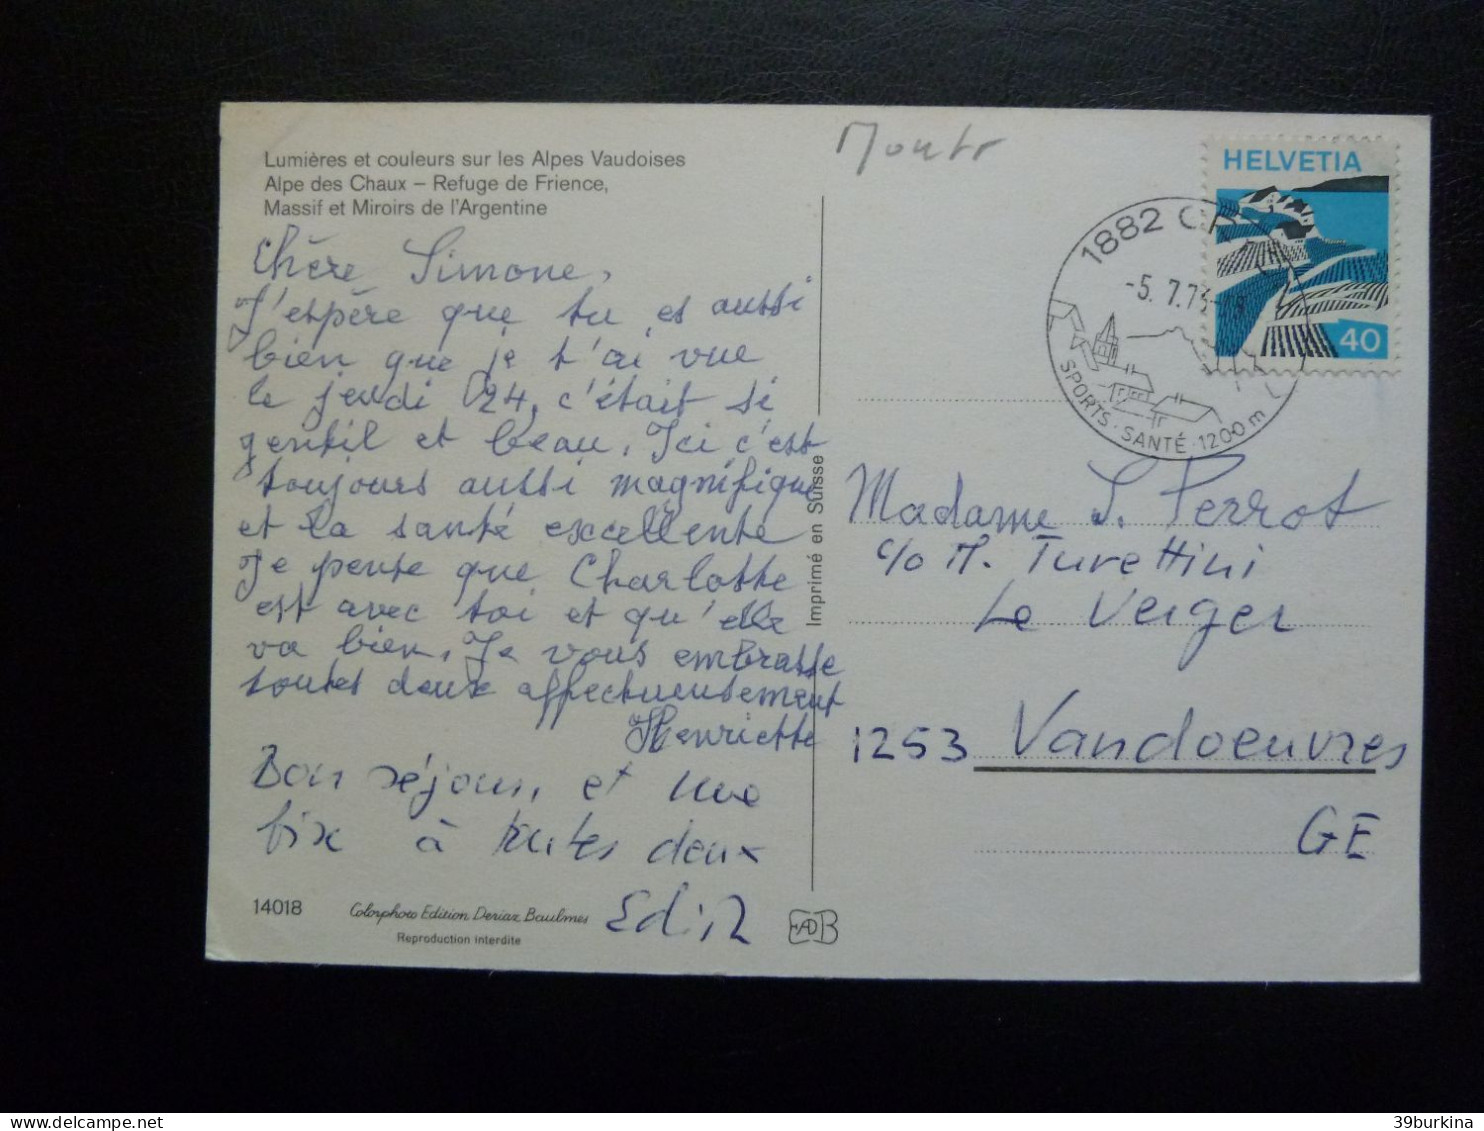 Lumières et couleurs sur les Alpes Vaudoises
Alpe des Chaux – Refuge de Frience,
Massif et Miroirs de l'Argentine
Chère Simone,
J'espère que tu es aussi
bien que je t'ai vue
le jeudi 24, c'était si
gentil et beau. Ici c'est
toujours aussi magnifique
et la santé excellente
Je pense que Charlotte
est avec toi et qu'elle
va bien. Je vous embrasse
toutes deux affectueusement
Henriette
Bon séjour, et une
bix à toutes deux
14018
Colorphoto Edition Deriaz Baulmes
Reproduction interdite
Imprimé en Suisse
Montr
HELVETIA
40
1882
-5. 7.73
SPORTS · SANTÉ · 1200 m
Madame S. Perrot
c/o M. Turettini
Le Verger
1253 Vandoeuvres
GE
39burkina